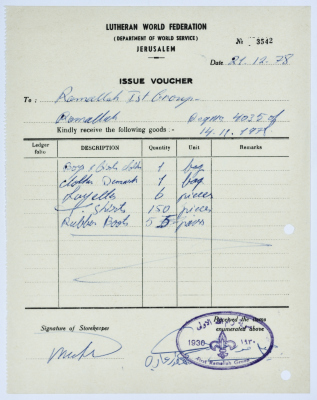 LUTHERAN WORLD FEDERATION
(DEPARTMENT OF WORLD SERVICE)
JERUSALEM
№ 3542
Date 21.12.78
ISSUE VOUCHER
To: Ramallah 1st Group
Ramallah 4025 of
Kindly receive the following goods :- 14.11.1978
Ledger folio DESCRIPTION Quantity Unit Remarks
Boys & Girls clothes 1 bag
Clothes 1 bag
Layettes 6 pieces
T. Shirts 150 pieces
Rubber Boots 55 pairs
Received the items
Signature of Storekeeper enumerated above
1936 ١٩٣٠
First Ramallah Group